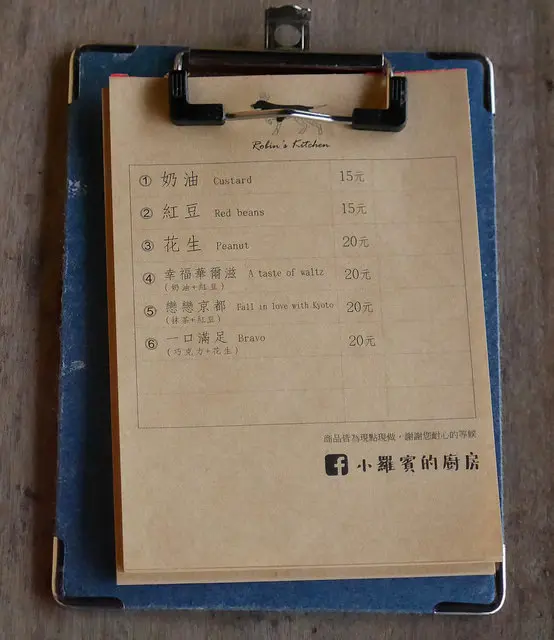 Robin's Kitchen
① 奶油 Custard 15元
② 紅豆 Red beans 15元
③ 花生 Peanut 20元
④ 幸福華爾滋 A taste of waltz 20元
(奶油+紅豆)
⑤ 戀戀京都 Fall in love with Kyoto 20元
(抹茶+紅豆)
⑥ 一口滿足 Bravo 20元
(巧克力+花生)
商品皆為現點現做，謝謝您耐心的等候
f 小羅賓的廚房